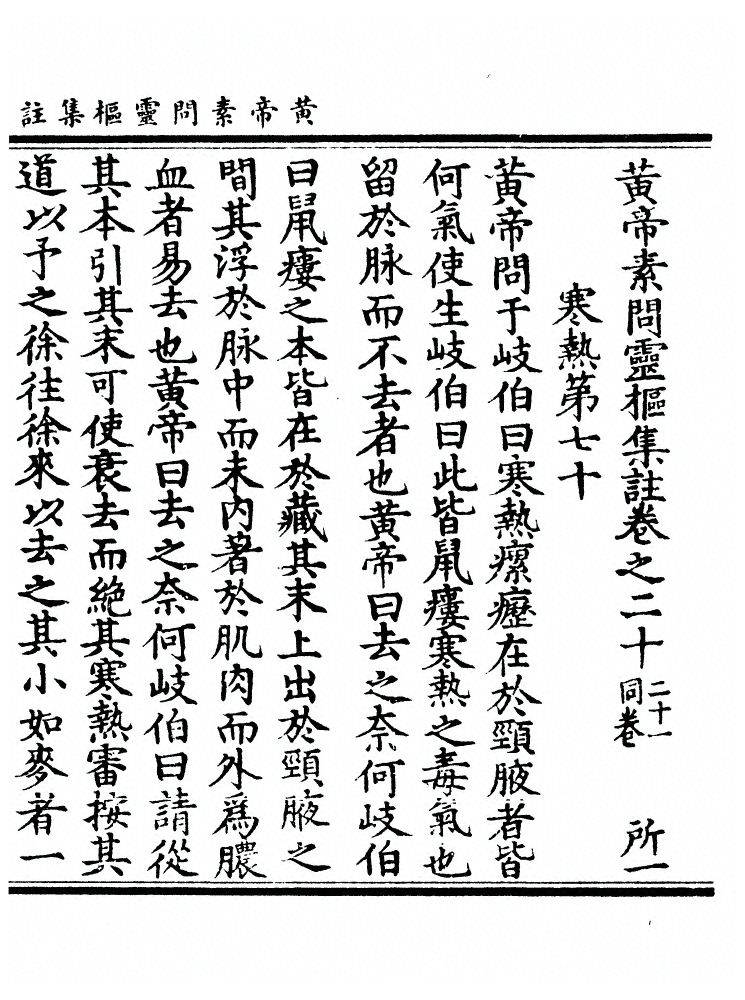 黃帝素問靈樞集註
黃帝素問靈樞集註卷之二十 二十一同卷 所一
寒熱第七十
黃帝問于岐伯曰寒熱瘰癧在於頸腋者皆
何氣使生岐伯曰此皆鼠瘻寒熱之毒氣也
留於脉而不去者也黃帝曰去之奈何岐伯
曰鼠瘻之本皆在於藏其末上出於頸腋之
間其浮於脉中而未内著於肌肉而外爲膿
血者易去也黃帝曰去之奈何岐伯曰請從
其本引其末可使衰去而絶其寒熱審按其
道以予之徐往徐來以去之其小如麥者一